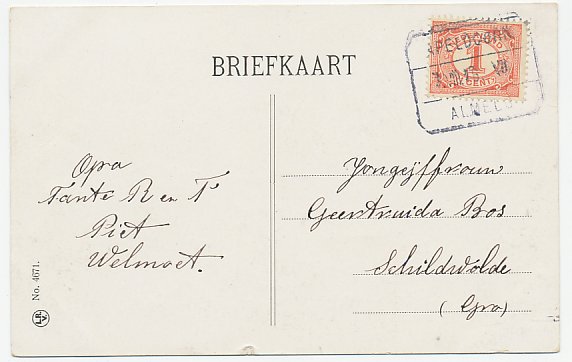 BRIEFKAART
APELDOORN
1
CENT
ALMELO
Opa
Tante R en T
Piet
Welmoet.
Jongejffrouw
Geertruida Bos
Schildwolde
(Gro)
No. 4671.